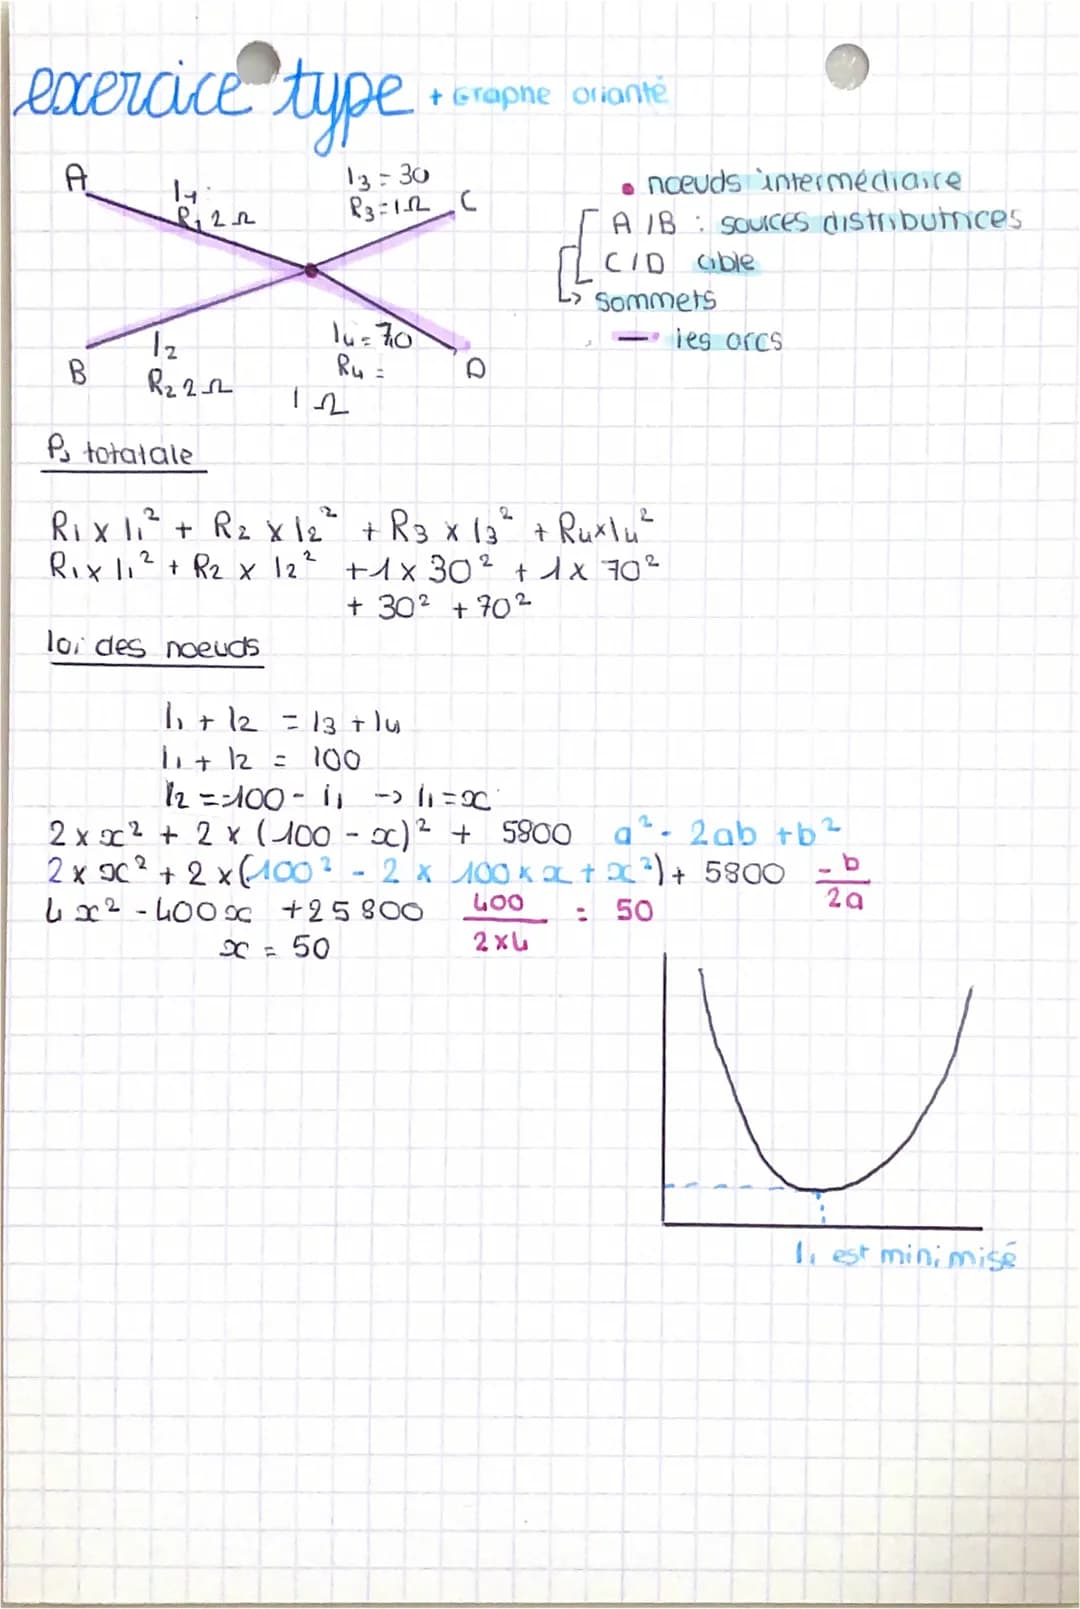 exercice type + Graphe orianté
A
I1
R1 2Ω
I3 = 30
R3 = 1Ω
C
B
I2
R2 2Ω
I4 = 70
R4 =
1Ω
D
• noeuds intermédiaire
A / B : sources distributrices
C / D cible
↳ sommets
— les arcs
PJ totalale
R1 x I1² + R2 x I2² + R3 x I3² + R4 x I4²
R1 x I1² + R2 x I2² + 1 x 30² + 1 x 70²
+ 30² + 70²
loi des noeuds
I1 + I2 = I3 + I4
I1 + I2 = 100
I2 = 100 - i1 -> I1 = x
2 x x² + 2 x (100 - x)² + 5800 a² - 2ab + b²
2 x x² + 2 x (100² - 2 x 100 x x + x²) + 5800 -b/2a
4x² - 400x + 25800 400/2x4 = 50
x = 50
I1 est minimisé